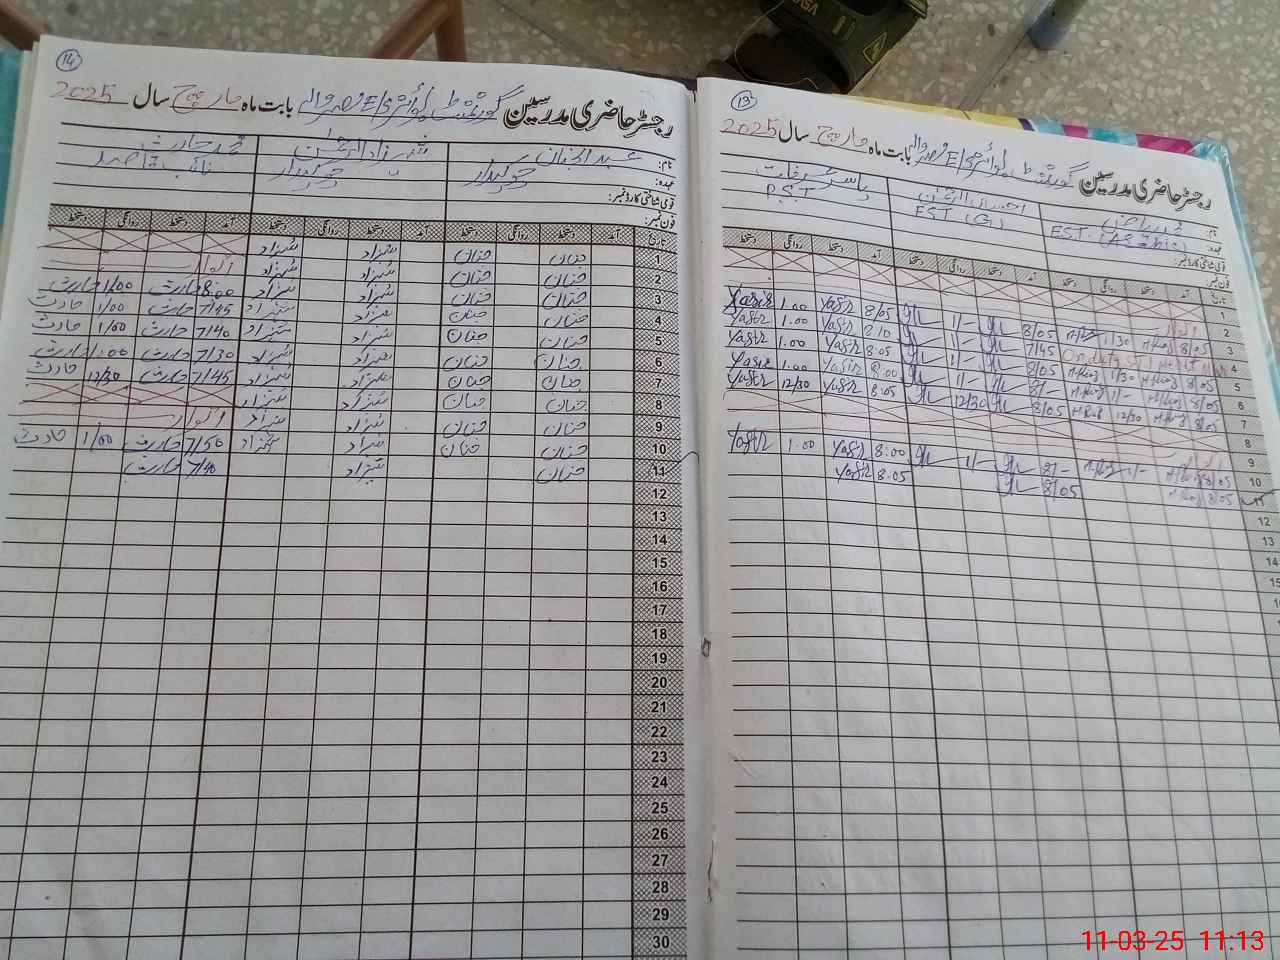 14
رجسٹر حاضری مدرسین گورنمنٹ بوائز E/S بابت ماہ مارچ سال 2025
نام: عبد الحنان شہزاد الرحمٰن محمد حارث
عہدہ: چوکیدار چوکیدار نائب قاصد
قومی شناختی کارڈ نمبر:
فون نمبر:
تاریخ آمد دستخط روانگی دستخط آمد دستخط روانگی دستخط آمد دستخط روانگی دستخط
1 حنان حنان شہزاد شہزاد
2 حنان حنان شہزاد شہزاد اتوار
3 حنان حنان شہزاد شہزاد 8:00 حارث 1/00 حارث
4 حنان حنان شہزاد شہزاد 7/45 حارث 1/00 حارث
5 حنان حنان شہزاد شہزاد 7/40 حارث 1/00 حارث
6 حنان حنان شہزاد شہزاد 7/30 حارث 1:00 حارث
7 حنان حنان شہزاد شہزاد 7/45 حارث 12/30 حارث
8 حنان حنان شہزاد شہزاد
9 حنان حنان شہزاد شہزاد اتوار
10 حنان حنان شہزاد شہزاد 7/50 حارث 1/00 حارث
11 حنان شہزاد 7/40 حارث
12
13
14
15
16
17
18
19
20
21
22
23
24
25
26
27
28
29
30
13
رجسٹر حاضری مدرسین گورنمنٹ بوائز E/S بابت ماہ مارچ سال 2025
نام: محمد ریاض احسان الرحمٰن یاسر عرفات
عہدہ: EST (Arabic) EST (G) P.S.T
قومی شناختی کارڈ نمبر:
فون نمبر:
تاریخ آمد دستخط روانگی دستخط آمد دستخط روانگی دستخط آمد دستخط روانگی دستخط
1
2 اتوار
3 8/05 1/30 8/05 1/- 8/05 Yasir 1.00 Yasir
4 On duty 7/45 1/- 8/10 Yasir 1.00 Yasir
5 8/05 1/30 8/05 1/- 8:05 Yasir 1.00 Yasir
6 8/05 1/- 8/- 1/- 8:00 Yasir 1.00 Yasir
7 8/05 12/30 8/05 12/30 8:05 Yasir 12/30 Yasir
8
9 اتوار
10 8/05 1/- 8/- 1/- 8:00 Yasir 1.00 Yasir
11 8/05 8/05 8:05 Yasir
12
13
14
15
11-03-25 11:13